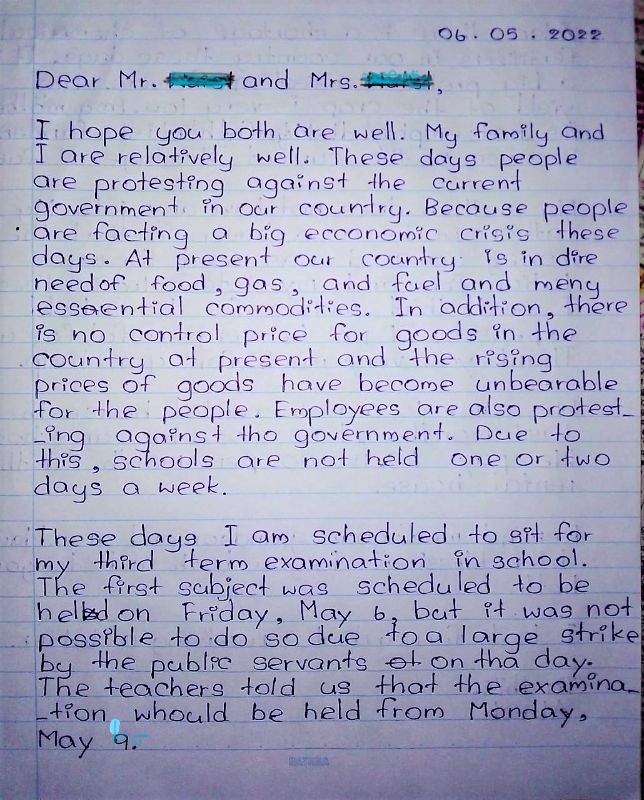 06. 05. 2022
Dear Mr. and Mrs. ,
I hope you both are well. My family and
I are relatively well. These days people
are protesting against the current
government in our country. Because people
are facting a big ecconomic crisis these
days. At present our country is in dire
need of food, gas, and fuel and meny
essaential commodities. In addition, there
is no control price for goods in the
country at present and the rising
prices of goods have become unbearable
for the people. Employees are also protest-
-ing against tho government. Due to
this, schools are not held one or two
days a week.
These days I am scheduled to sit for
my third term examination in school.
The first subject was scheduled to be
held on Friday, May 6, but it was not
possible to do so due to a large strike
by the public servants on tha day.
The teachers told us that the examina-
-tion whould be held from Monday,
May 9.
BATHNA